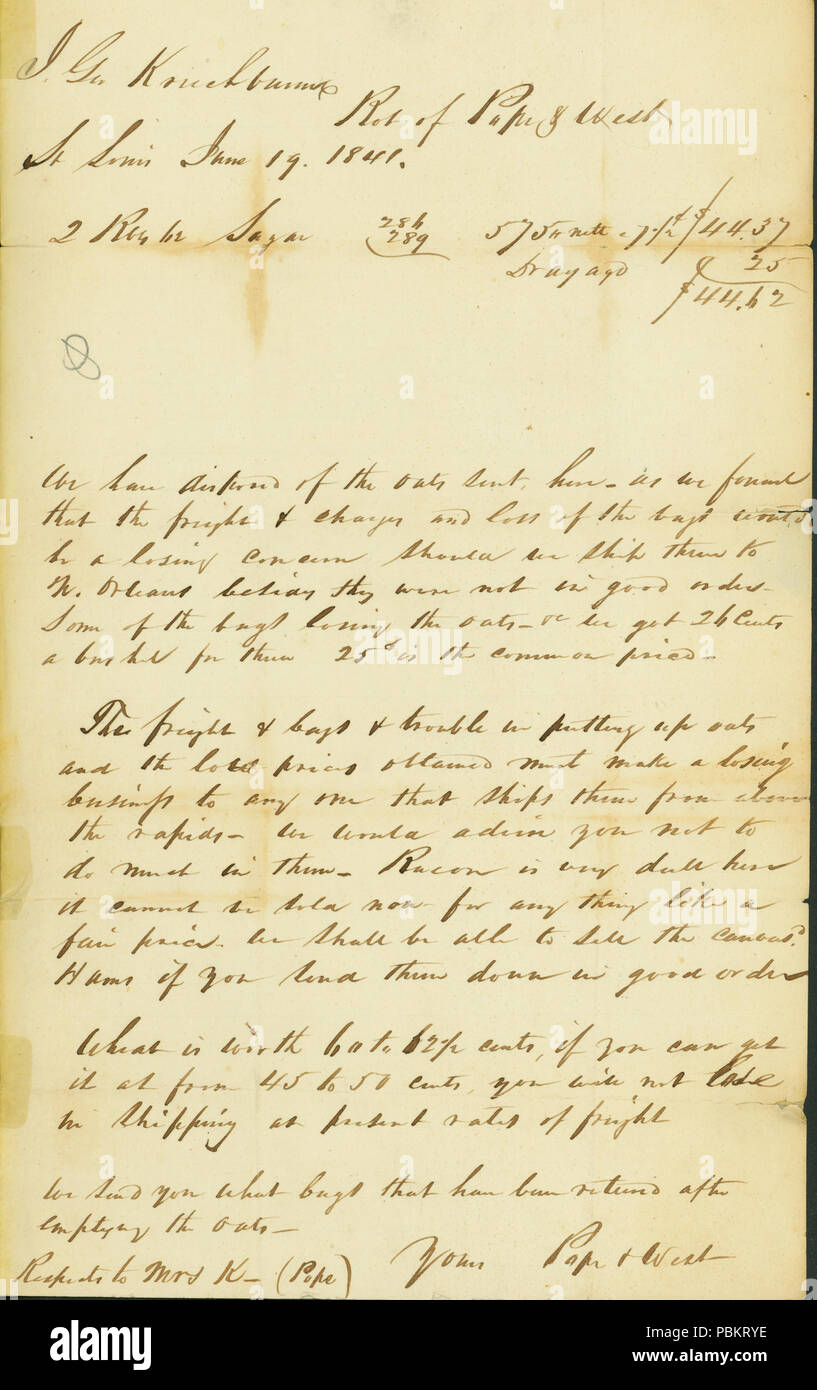 J. Geo Kriechbaum
Bot of Pope & West
St Louis June 19. 1841.
2 Sugar 286 575 nett 7½ $44.37
289
Drayage 25
$44.62
We have disposed of the oats sent here - as we found
that the freight & charges and loss of the bags would
be a losing concern should we ship them to
N. Orleans besides they were not in good order
Some of the bags losing the oats - we got 26 Cents
a bushel for them 25c is the common price -
The freight & bags & trouble in putting up oats
and the low prices obtained must make a losing
business to any one that ships them from above
the rapids - We would advise you not to
do much in them - Bacon is very dull here
it cannot be sold now for any thing like a
fair price. We shall be able to sell the canvasd
Hams if you send them down in good order
Wheat is worth 60 to 62½ cents, if you can get
it at from 45 to 50 cents, you will not lose
in shipping at present rates of freight
We send you what bags that have been returned after
emptying the oats -
Yours Pope & West
Respects to Mrs K - (Pope)
alamy
Image ID: PBKRYE
www.alamy.com